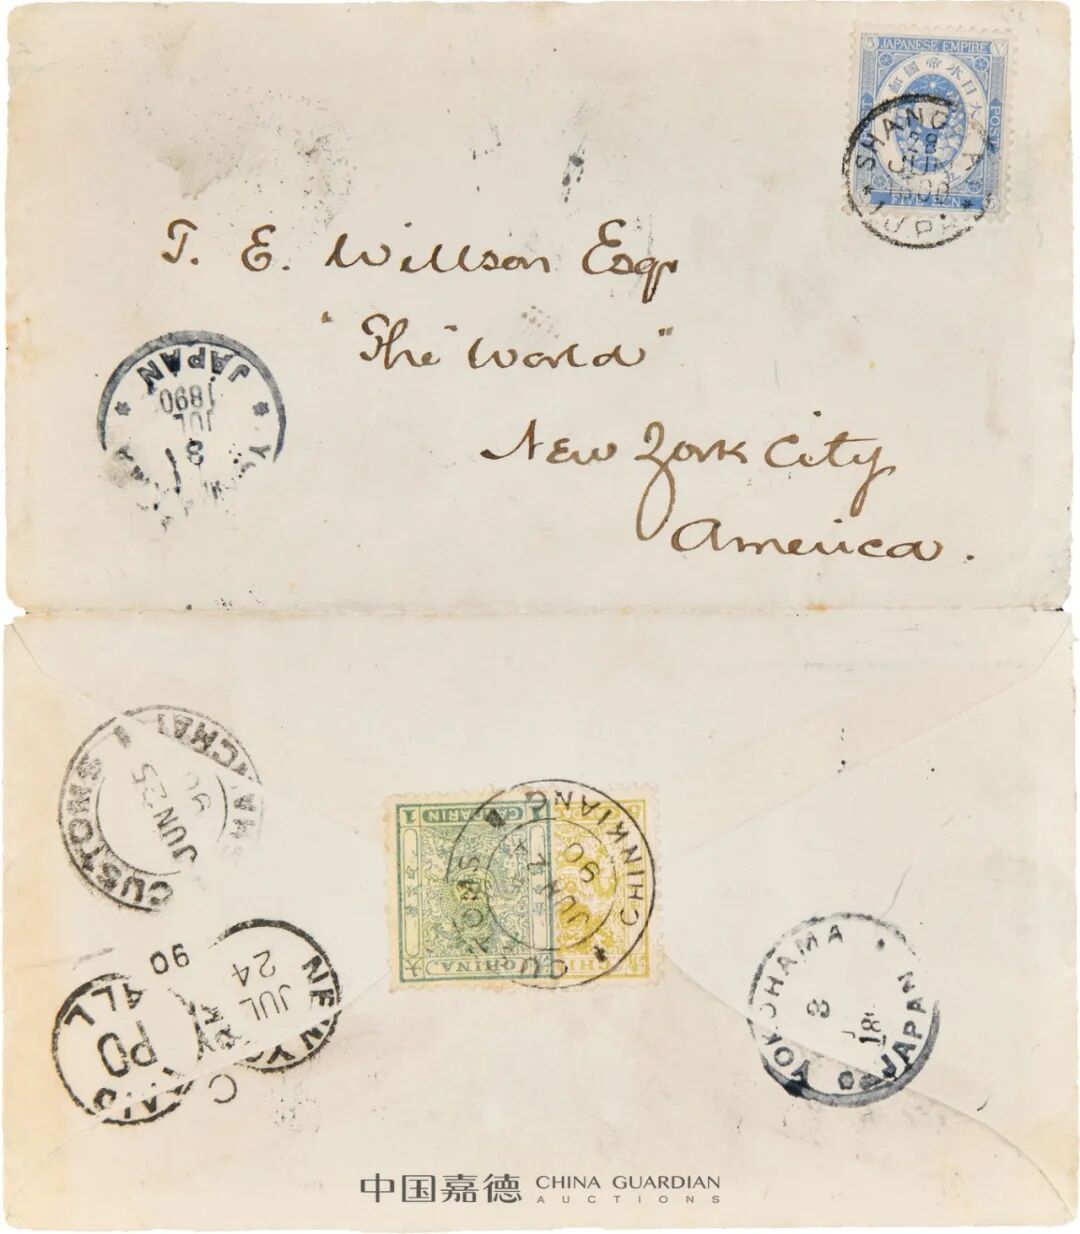 5
JAPANESE EMPIRE
V
大日本帝國郵
POST
FIVE SEN
5
SHANG A
29
JUN
I.J.P.
T. E. Willson Esqr
"The World"
New York City
America.
JAPAN
1890
JUL
8
CUSTOMS
JUN 25
90
1
CANDARIN
CHINA
大
CHINKIANG
90
JUN
CUSTOMS
CHI
NEW YORK
JUL
24
90
PAID
ALL
C
YOKOHAMA
JAPAN
8
J
18
中国嘉德 CHINA GUARDIAN
AUCTIONS